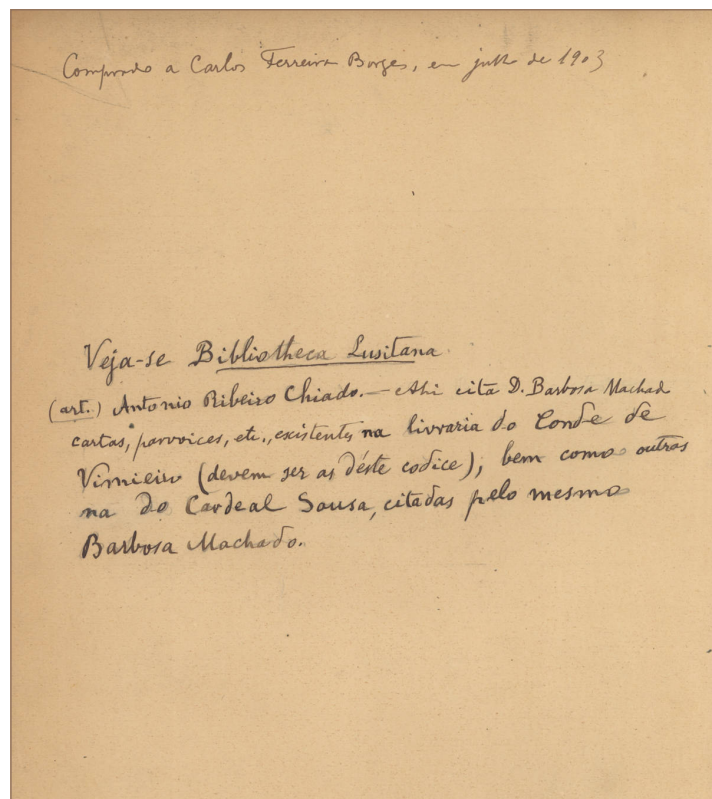 Comprado a Carlos Ferreira Borges, em julho de 1903
Veja-se Bibliotheca Lusitana
(art.) Antonio Ribeiro Chiado. — Ahi cita D. Barbosa Machad
cartas, parvoices, etc., existentes na livraria do Conde de
Vimieiro (devem ser as déste codice), bem como outras
na do Cardeal Sousa, citadas pelo mesmo
Barbosa Machado.